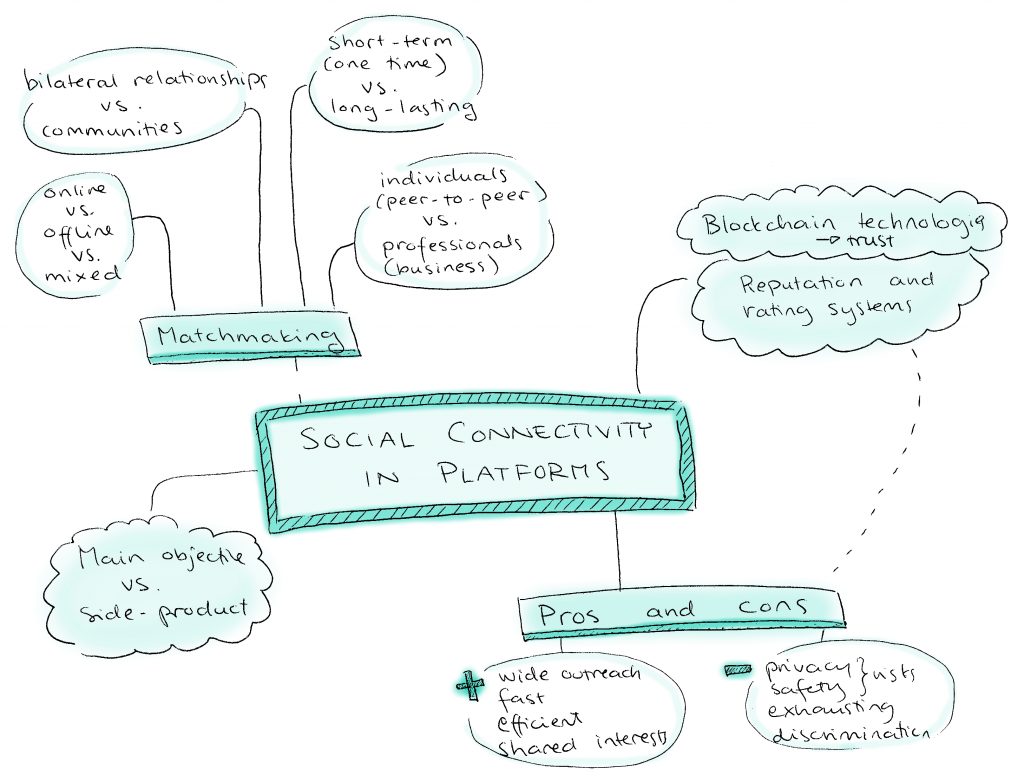 short-term
(one time)
vs.
long-lasting
bilateral relationships
vs.
communities
individuals
(peer-to-peer)
vs.
professionals
(business)
online
vs.
offline
vs.
mixed
Matchmaking
Blockchain technologia
→ trust
Reputation and
rating systems
SOCIAL CONNECTIVITY
IN PLATFORMS
Main objective
vs.
side-product
Pros and cons
+ wide outreach
fast
efficient
shared interests
- privacy } risks
safety
exhausting
discrimination